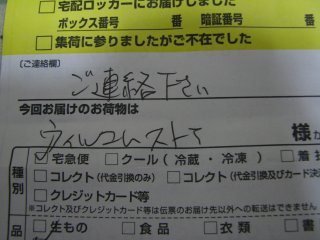 □宅配ロッカーにお届けしました
ボックス番号 番 暗証番号 番
□集荷に参りましたがご不在でした
〔ご連絡欄〕
ご連絡下さい
今回お届けのお荷物は
ウィルコムストア 様か
種別 ☑宅急便 □クール(冷蔵・冷凍) □着払
□コレクト(代金引換のみ) □コレクト(代金引換及びカード決
□クレジットカード等
※コレクト及びクレジットカード等は伝票のお届け先以外への転送はできません
品 □生もの □食品 □衣類 □書